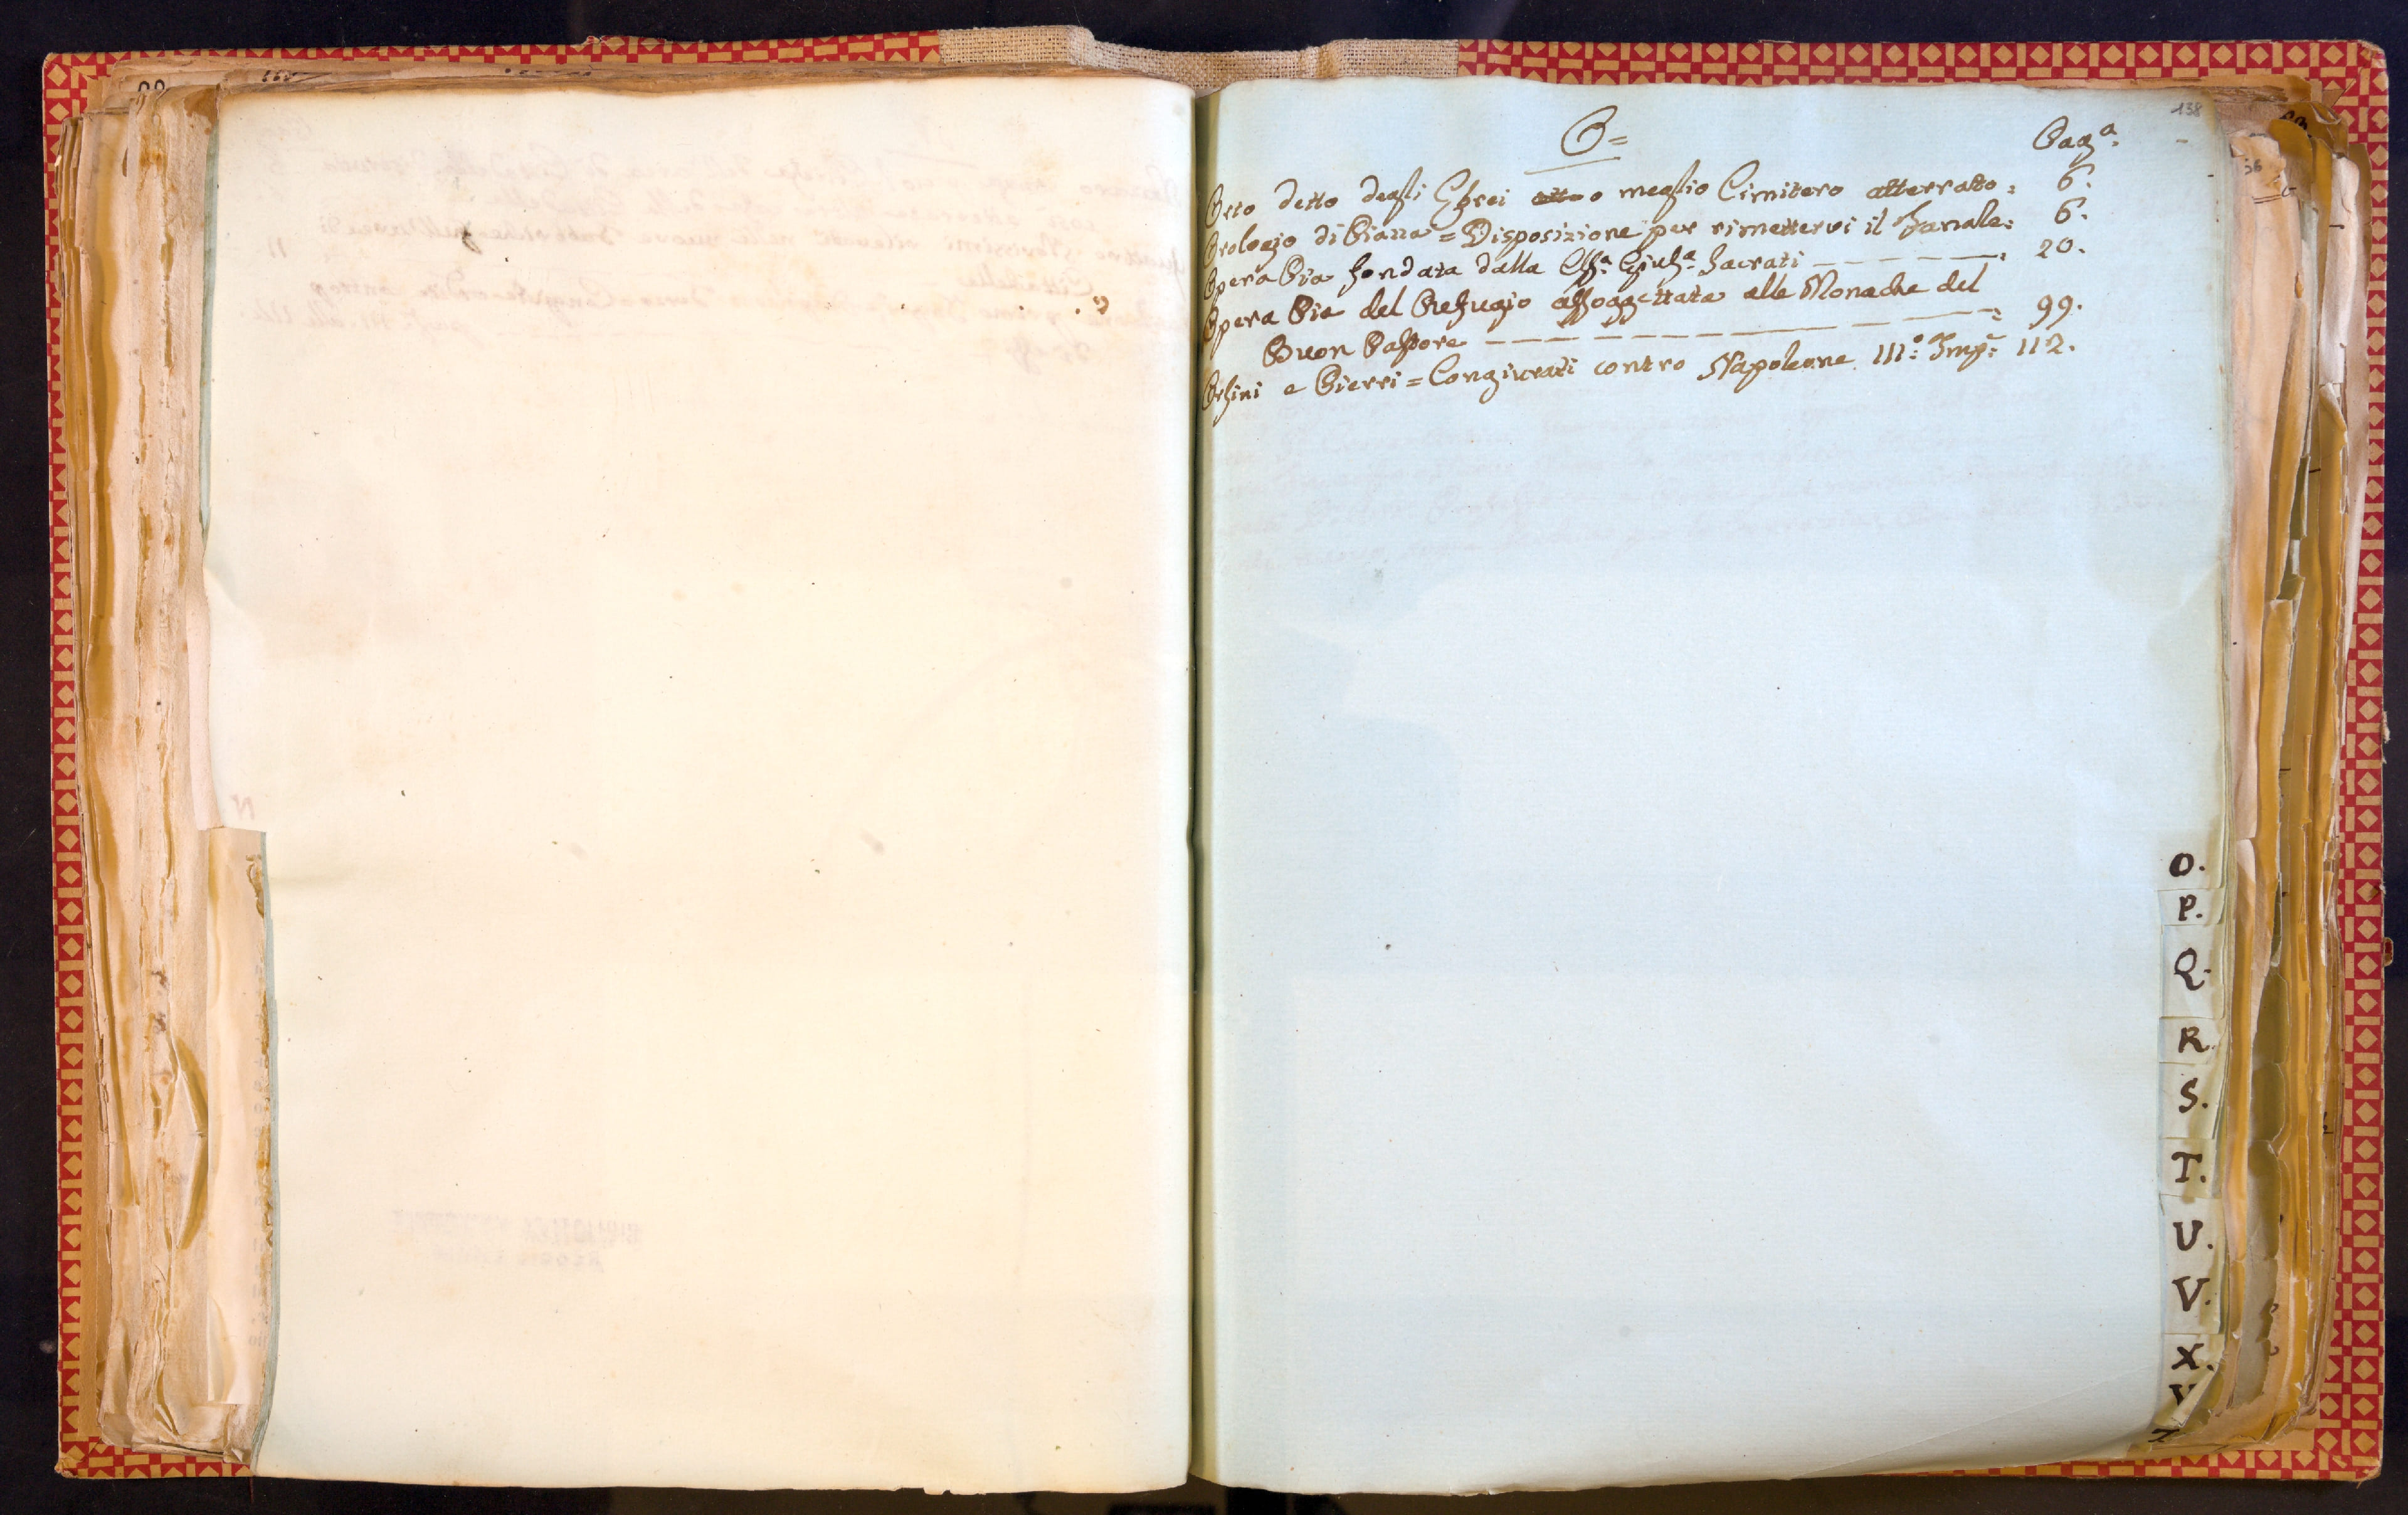 138
O=
Pag.ª
Orto detto degli Ebrei o meglio Cimitero atterrato: 6.
Orologio di Piazza = Disposizione per rimettervi il Fanale: 6.
Opera Pia fondata dalla Giul.ª Sacrati 20.
Opera Pia del Refugio assoggettata alle Monache del
Buon Pastore 99.
Orsini e Pierri = Congiurati contro Napoleone III.º Imp.e 112.
O.
P.
Q.
R.
S.
T.
U.
V.
X.
Y
Z